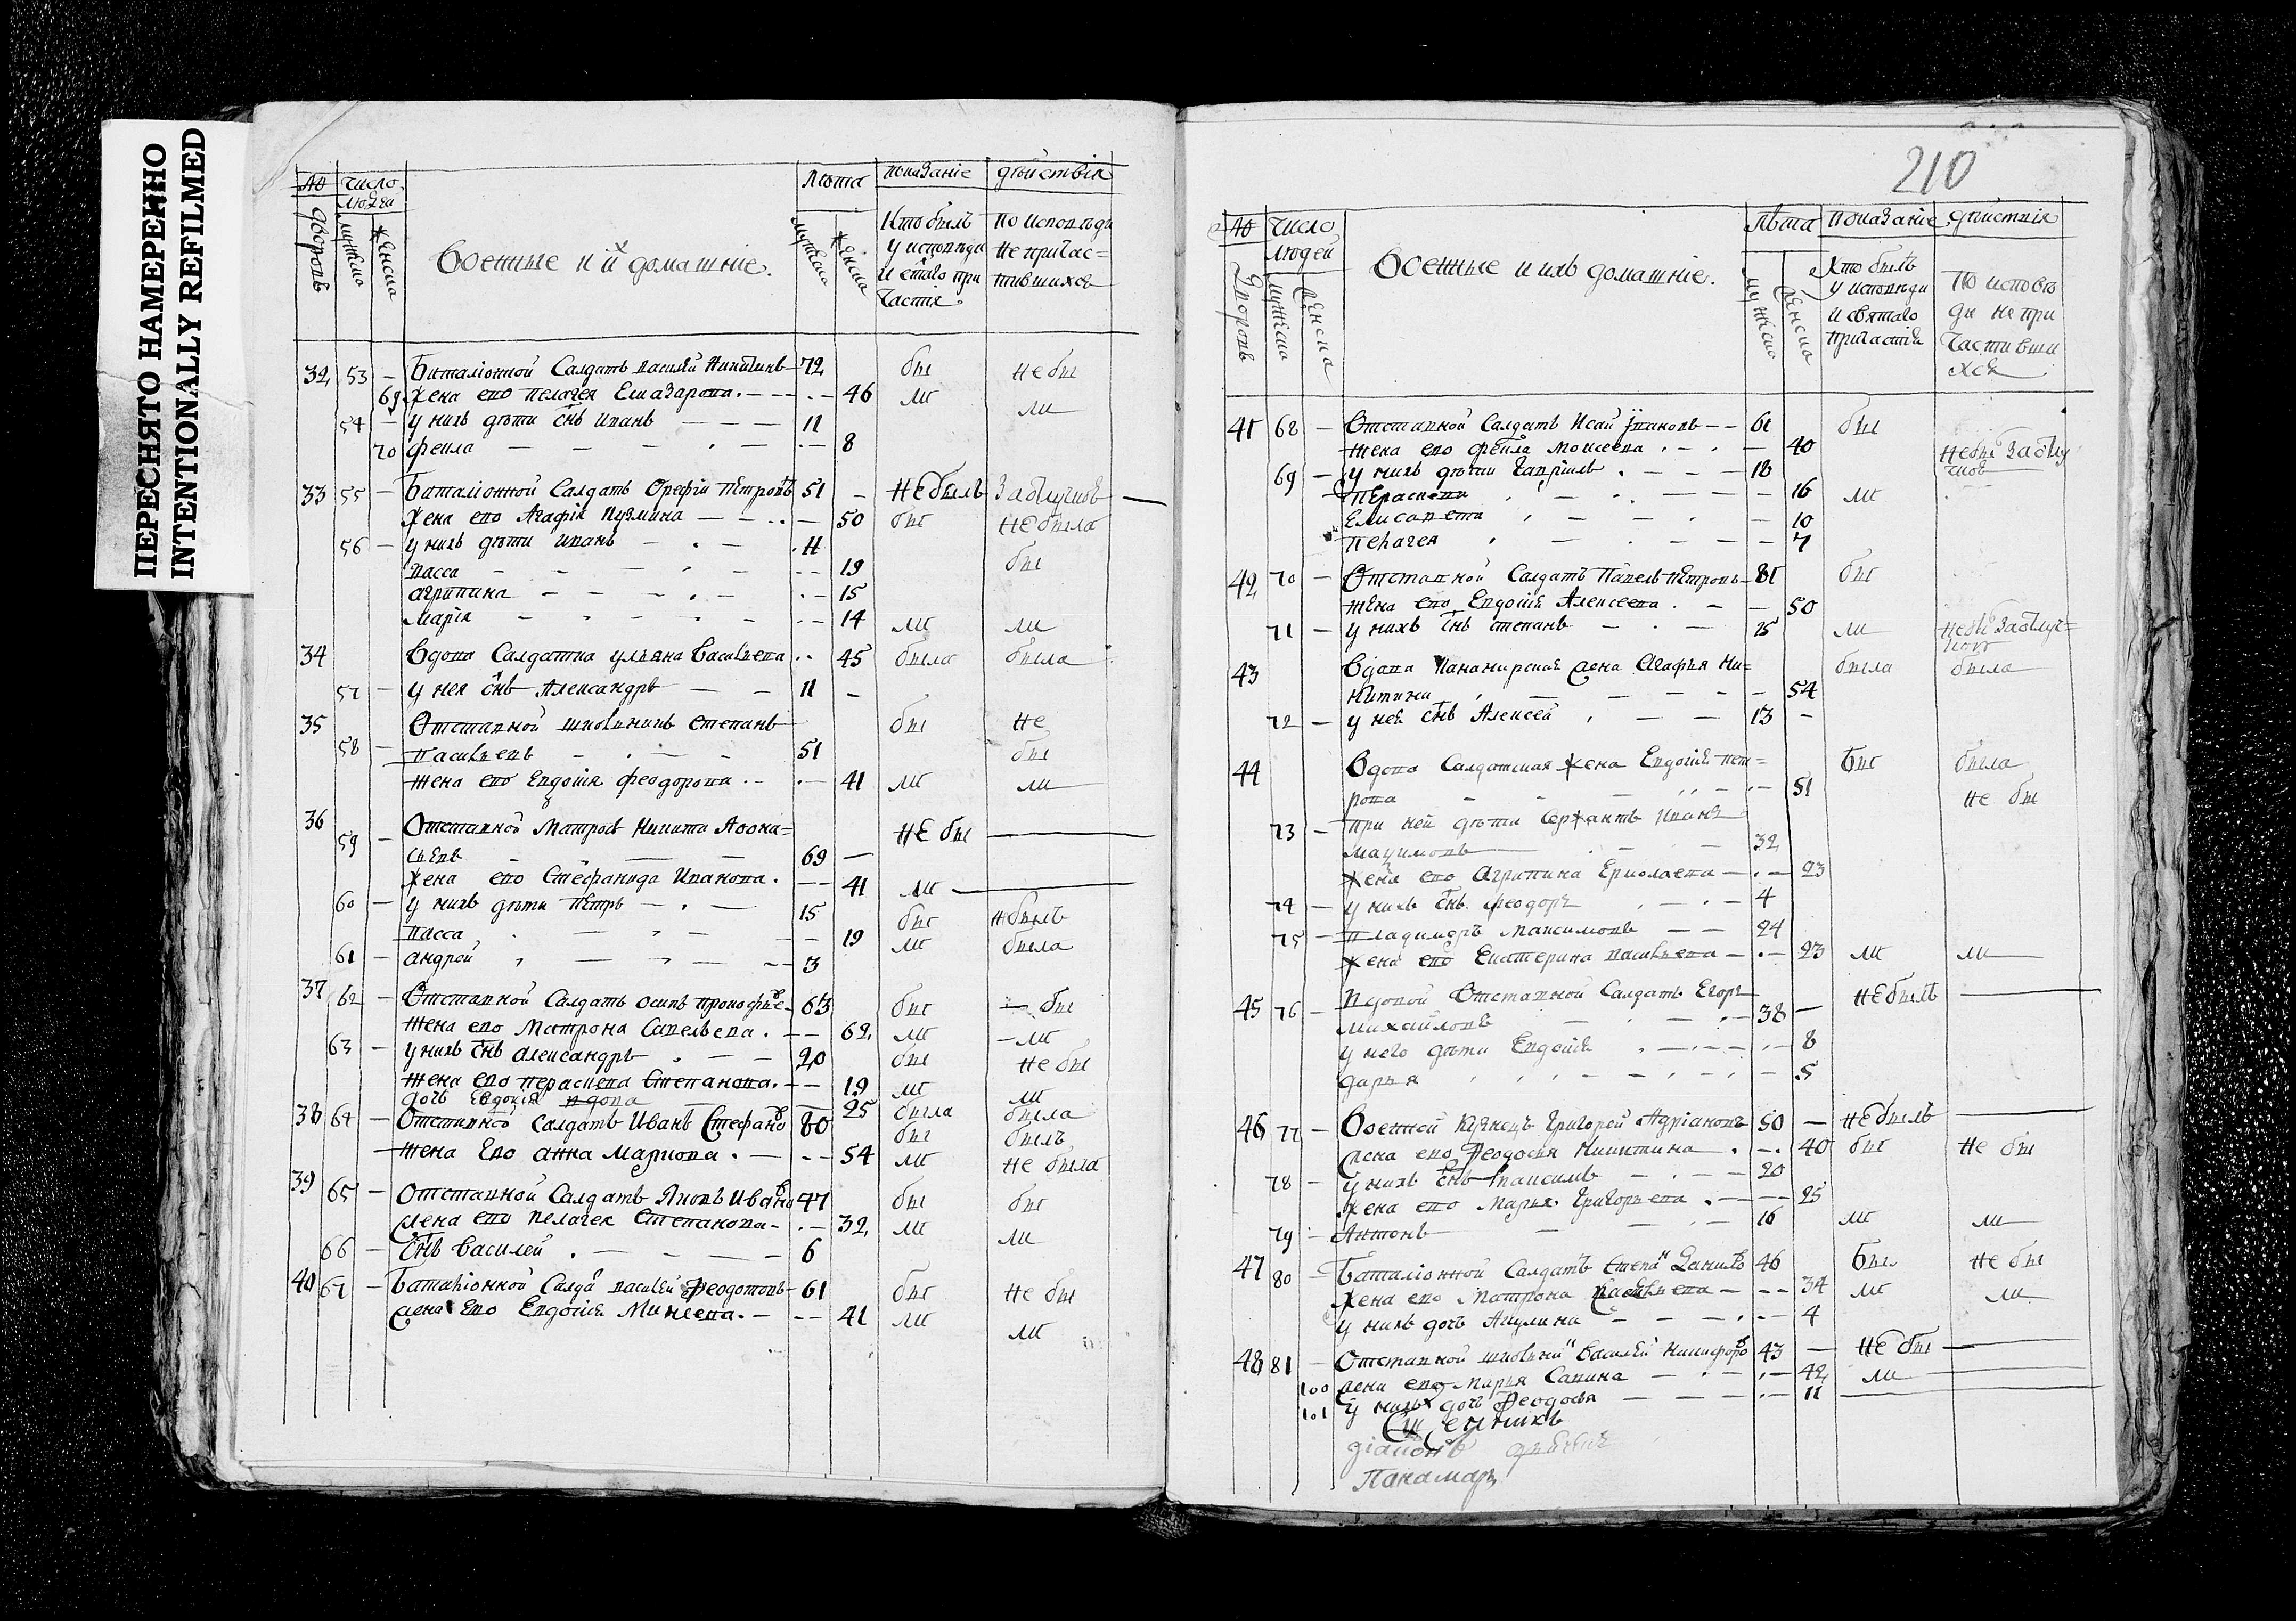 ПЕРЕСНЯТО НАМЕРЕННО
INTENTIONALLY REFILMED
число людей Лѣта показаніе дѣйствія
дворовъ мужеска женска Военные и ихъ домашніе. мужеска женска
Кто былъ по исповѣди
у исповѣди не причас=
и стаго при тившихся
частія.
32 53 – Баталіонной Салдатъ василей Никитинъ 72 бы не бы
69 жена его пелагея Елиазарова 46 ли ли
54 – у нихъ дѣти снъ иванъ 11
70 феила 8
33 55 – Баталіонной Салдатъ Орефіи петровъ 51 – не былъ
жена его Агафія Кузмина 50 бы не была
56 – у нихъ дѣти иванъ 11
васса 19 бы
агрипина 15
марія 14 ли ли
34 Вдова Салдатка ульяна Васильева 45 была была
57 – у нея снъ Александръ 11 –
35 Отставной школьникъ степанъ бы не
58 – васильевъ 51 бы
жена его Евдокія феодорова 41 ли ли
36 Отставной матросъ Никита Аѳона= не бы
59 – сьевъ 69 –
жена его Стефанида Иванова 41 ли
60 – у нихъ дѣти петръ 15 бы не былъ
васса 19 ли была
61 – андрей 3
37 62 – Отставной Салдатъ осипъ прокофье 63 бы бы
жена его Матрона Савельева 62 ли ли
63 – у нихъ снъ александръ 20 бы не бы
жена его перасковя Степанова 19 ли ли
дочь Евдокія вдова 25 была была
38 64 – Отставной Салдатъ Иванъ Стефано 80 бы былъ
жена Его анна Маркова 54 ли не была
39 65 – Отставной Салдатъ Яковъ Ивано 47 бы бы
жена его пелагея Степанова 32 ли ли
66 – Снъ Василей 6
40 67 – Баталіонной Салда василей Феодотовъ 61 бы не бы
жена Его Евдокія Минеева 41 ли ли
210
число людей лѣта показаніе дѣйствія
дворовъ мужеска женска Военные и ихъ домашніе. мужеска женска
Кто былъ
у исповѣди По исповѣ
и святаго ди не при
причастія частивши
хся
41 68 – Отставной Салдатъ Исай 61 бы
жена его феила Моисеева 40
69 – у нихъ дѣти Гаврилъ 18
перасковя 16 ли
Елисавета 10
пелагея 7
42 70 – Отставной Салдатъ Павелъ петровъ 81 бы
жена его Евдокія Алексеева 50
71 – у нихъ снъ степанъ 25 ли
43 Вдова жена Агафья Ни= была была
китина 54
72 – у нея снъ Алексей 13 –
44 Вдова Салдатская жена Евдокія пет= бы была
рова 51 не бы
73 – при ней дѣти Сержантъ Иванъ
максимовъ 32
жена его Агрипина Ермолаева 23
74 – у нихъ снъ феодоръ 4
75 – владимеръ максимовъ 24
жена его Екатерина васильева 23 ли ли
45 76 – Отставной Салдатъ Егоръ не былъ
михайловъ 38 –
у него дѣти Евдокія 8
дарья 5
46 77 – Военной Григорей Адріановъ 50 – не былъ
жена его Феодосья Никитина 40 бы не бы
78 – у нихъ снъ 20
жена его марья Григорьева 25
79 – Антонъ 16 ли ли
47 80 – Баталіонной Салдатъ степа Данило 46 бы не бы
жена его Матрона Васильева 34 ли ли
у нихъ дочь Акулина 4
48 81 – Отставной школьни Василей Никифоро 43 – не бы
100 жена его марья Савина 42 ли
101 у нихъ дочь Феодосья 11
діаконъ
Панамарь